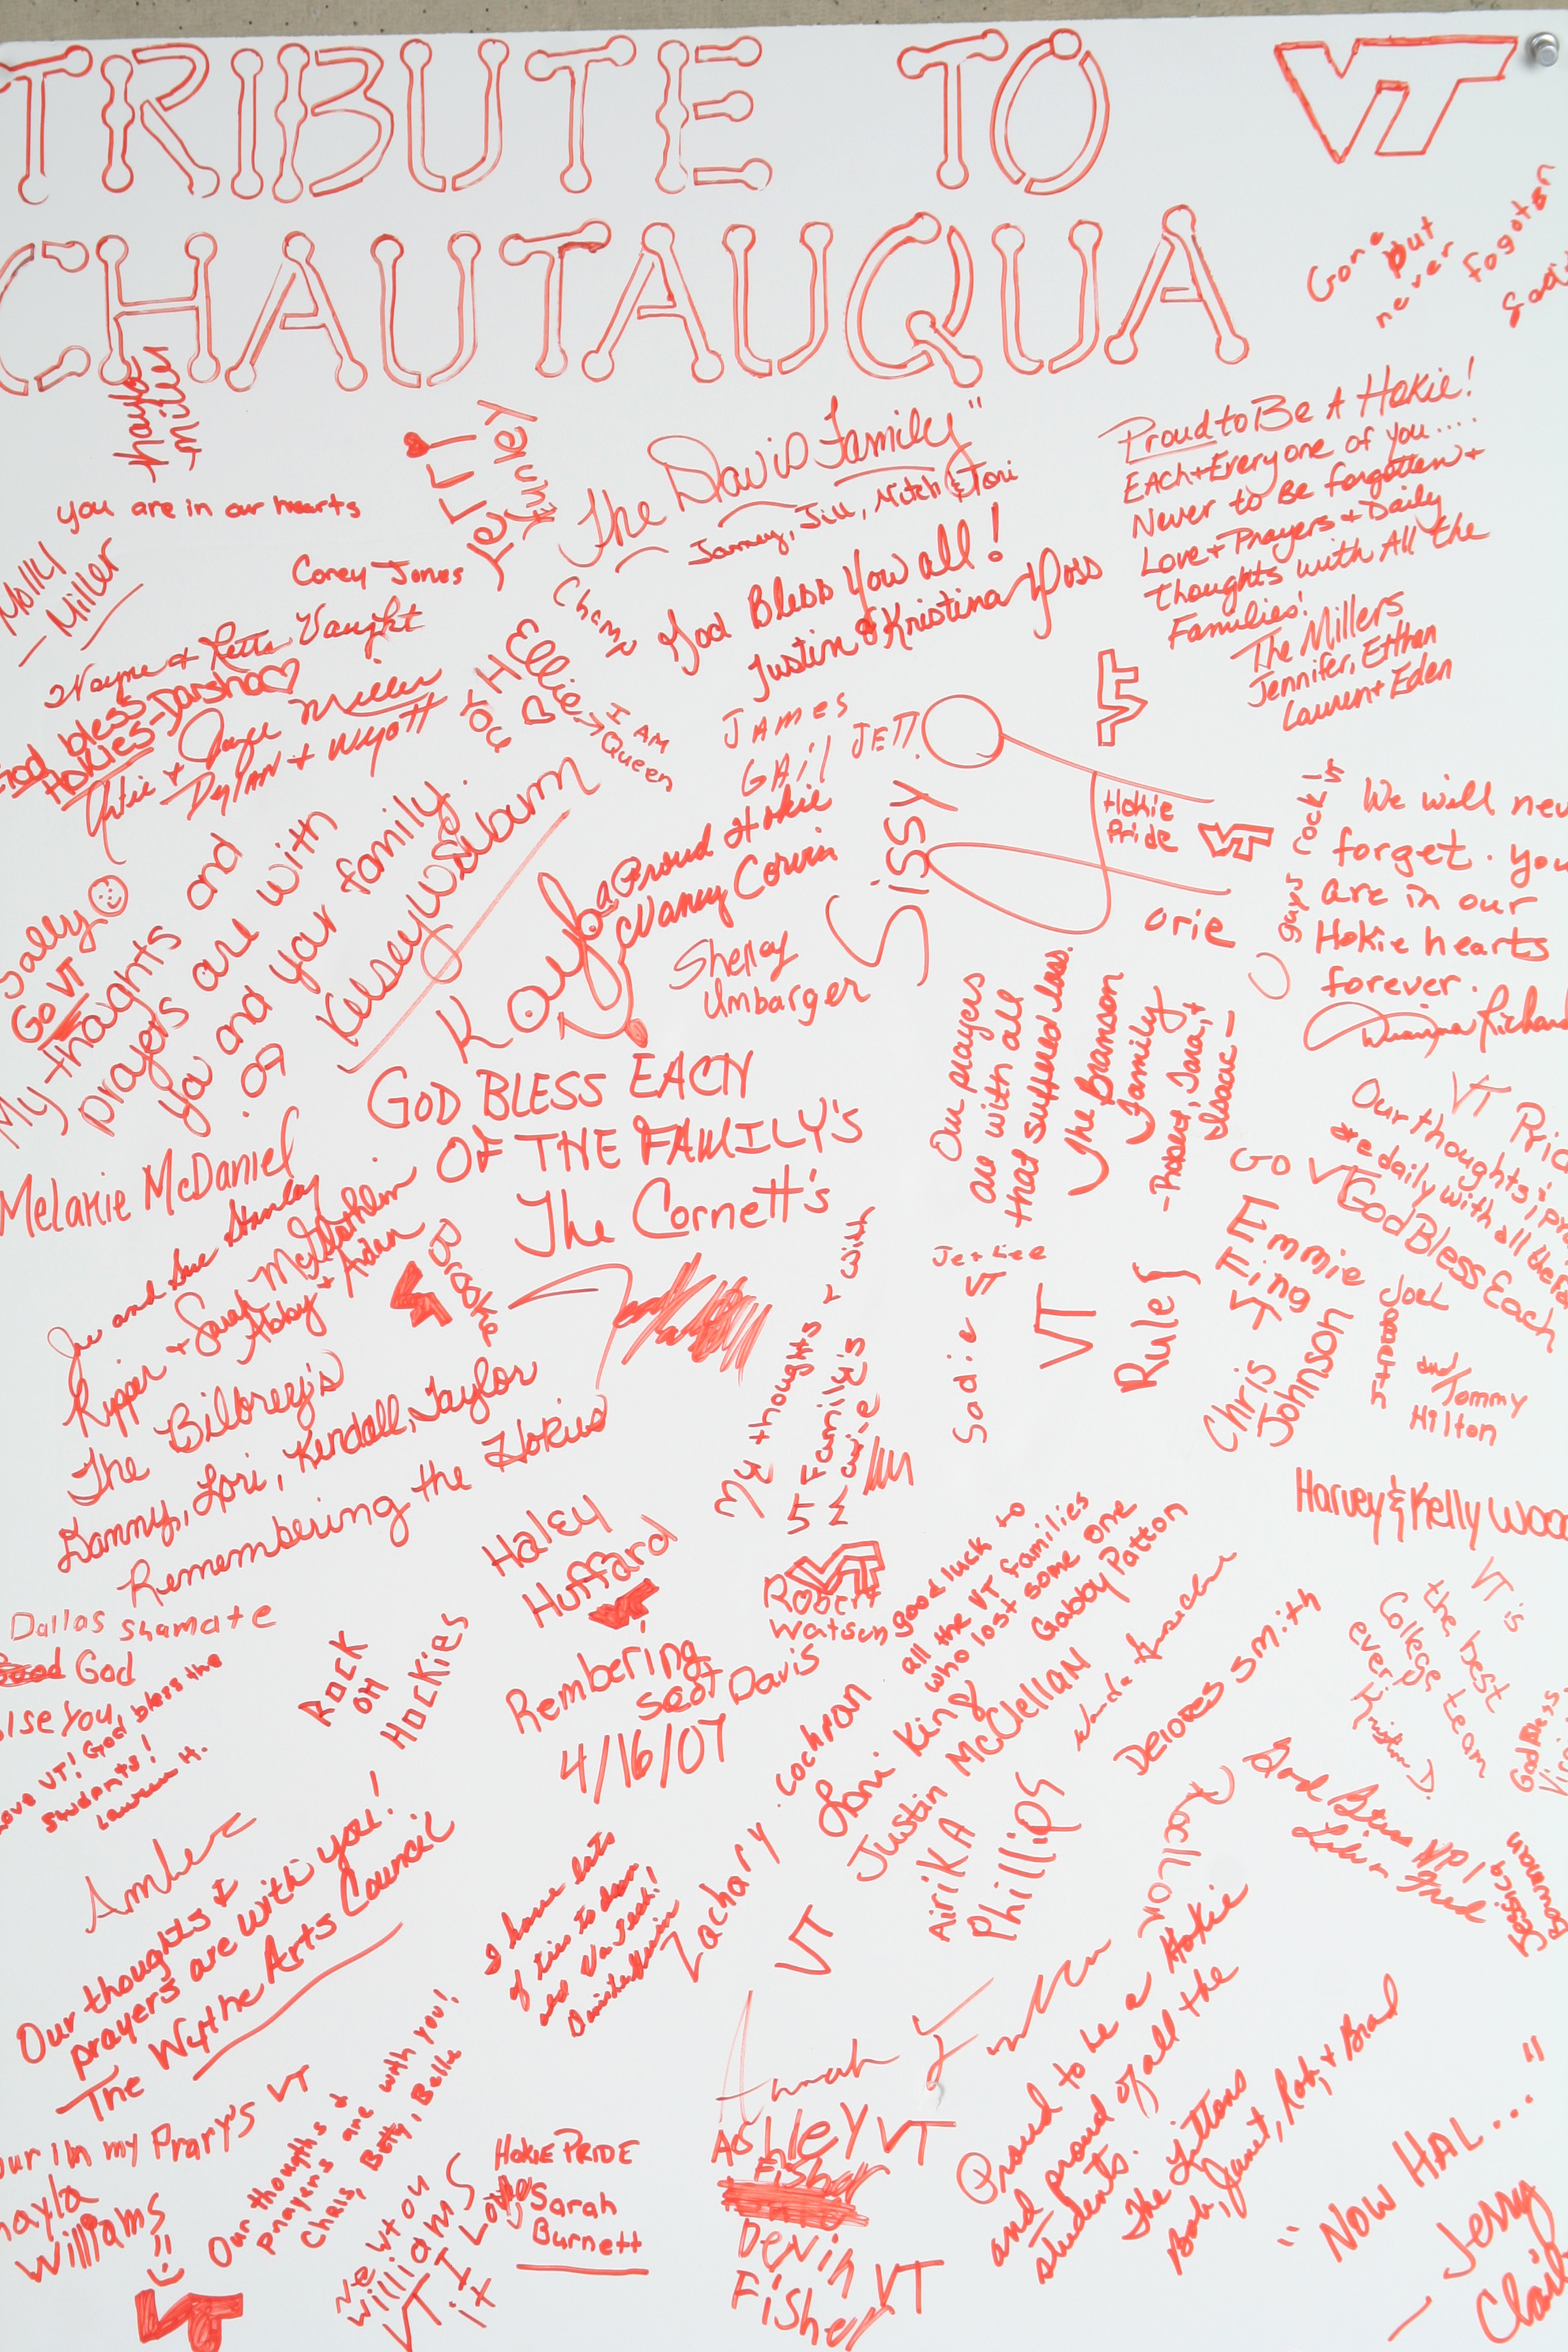 TRIBUTE TO VT
CHAUTAUQUA
Gone but
never fogoten
you are in our hearts
Molly
Miller
Corey Jones
Terri
"The Davis Family"
Jamey, Jill, Mitch & Tori
God Bless You all!
Justin & Kristina Yoss
Proud to Be A Hokie!
Each + Everyone of you....
Never to Be forgotten +
Love + Prayers + Daily
thoughts with All the
Families!
The Millers
Jennifer, Ethan
Lauren + Eden
Wayne + Retta Vaught
God bless
Hokies-Darsha
Artie + Joyce Miller
Dylan + Wyatt
Ellie
I AM
Queen
JAMES
GAIL JETT
Sally
Go VT
My thoughts and
prayers are with
you and your family.
'09 Kelsey Wilburn
Kayla
a Proud Hokie
Nancy Corvin
Shelley
Umbarger
Sissy
Hokie
Pride VT
orie
We will nev
forget. you
are in our
Hokie hearts
forever.
Our prayers
are with all
that suffered loss.
The Branson
Family
-Robert, Tara, +
Isaac-
GOD BLESS EACH
OF THE FAMILY's
The Cornett's
Melanie McDaniel
Joe and Sue Stanley
Ripper + Sarah McGlothlin
Abby + Aidan
Brooke
VT Prid
Our thoughts & pra
are daily with all the fa
God Bless Each
GO VT
Emmie
Fing
VT
Jet Lee
Sadie VT
VT
Rules
Joel
Chris
Johnson
and Tommy
Hilton
The Bilbrey's
Danny, Lori, Kendall, Taylor
Remembering the Hokies
My thoughts r with
Family's
Harvey & Kelly Wood
Haley
Huffard
VT
VT
Robert
Watson
good luck to
all the VT families
who lost some one
Gabby Patton
Dallas Shamate
God
love VT! God bless the
students!
Lauren H.
ROCK
ON
HOCKIES
Rembering
Scot Davis
4/16/07
VT is
the best
College team
ever
Kristin D.
God Bless
Zachary Cochran
Lori King
Justin McClellan
Airika
Phillips
Delores Smith
Taylor
God Bless
Jessica
Bowman
Amber
Our thoughts &
prayers are with you!
The Wythe Arts Council
VT
Hannah
Proud to be a Hokie
and proud of all the
students.
The Littons
Bob, Janet, Rob, + Brad
our in my Prarys VT
Kayla
Williams
VT
Our thoughts +
prayers are with you!
Chris, Betty, Belle
Newton
Williams
VT I Love
it
HOKIE PRIDE
Sarah
Burnett
Ashley VT
Fisher
Devin
Fisher VT
"NOW HAL..."
- Jerry